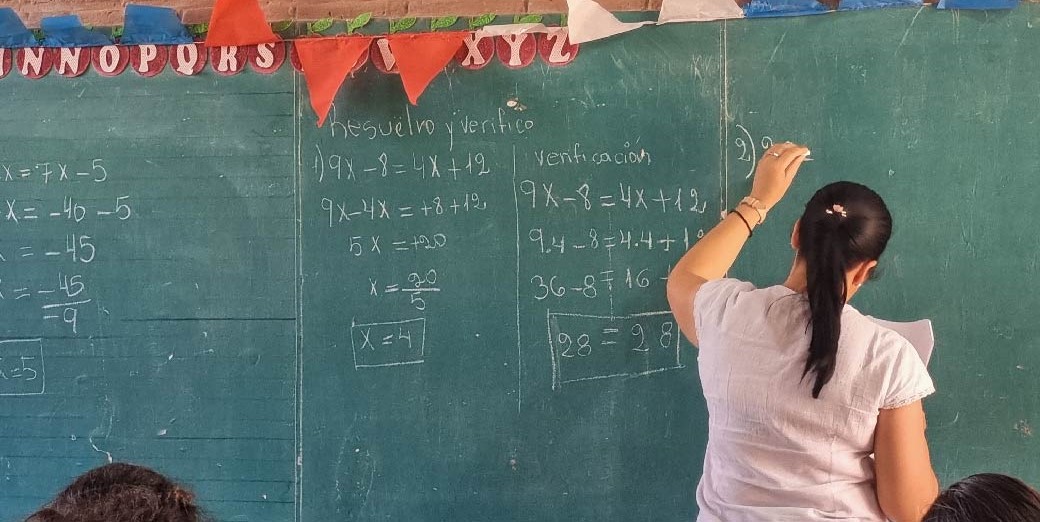 N N O P Q R S
X Y Z
x = 7x - 5
x = -40 - 5
= -45
= -45
-9
x = 5
Resuelvo y Verifico
1) 9x - 8 = 4x + 12
9x - 4x = +8 + 12
5x = +20
x = 20
5
x = 4
Verificación
9x - 8 = 4x + 12
9.4 - 8 = 4.4 + 1
36 - 8 = 16
28 = 28
2)